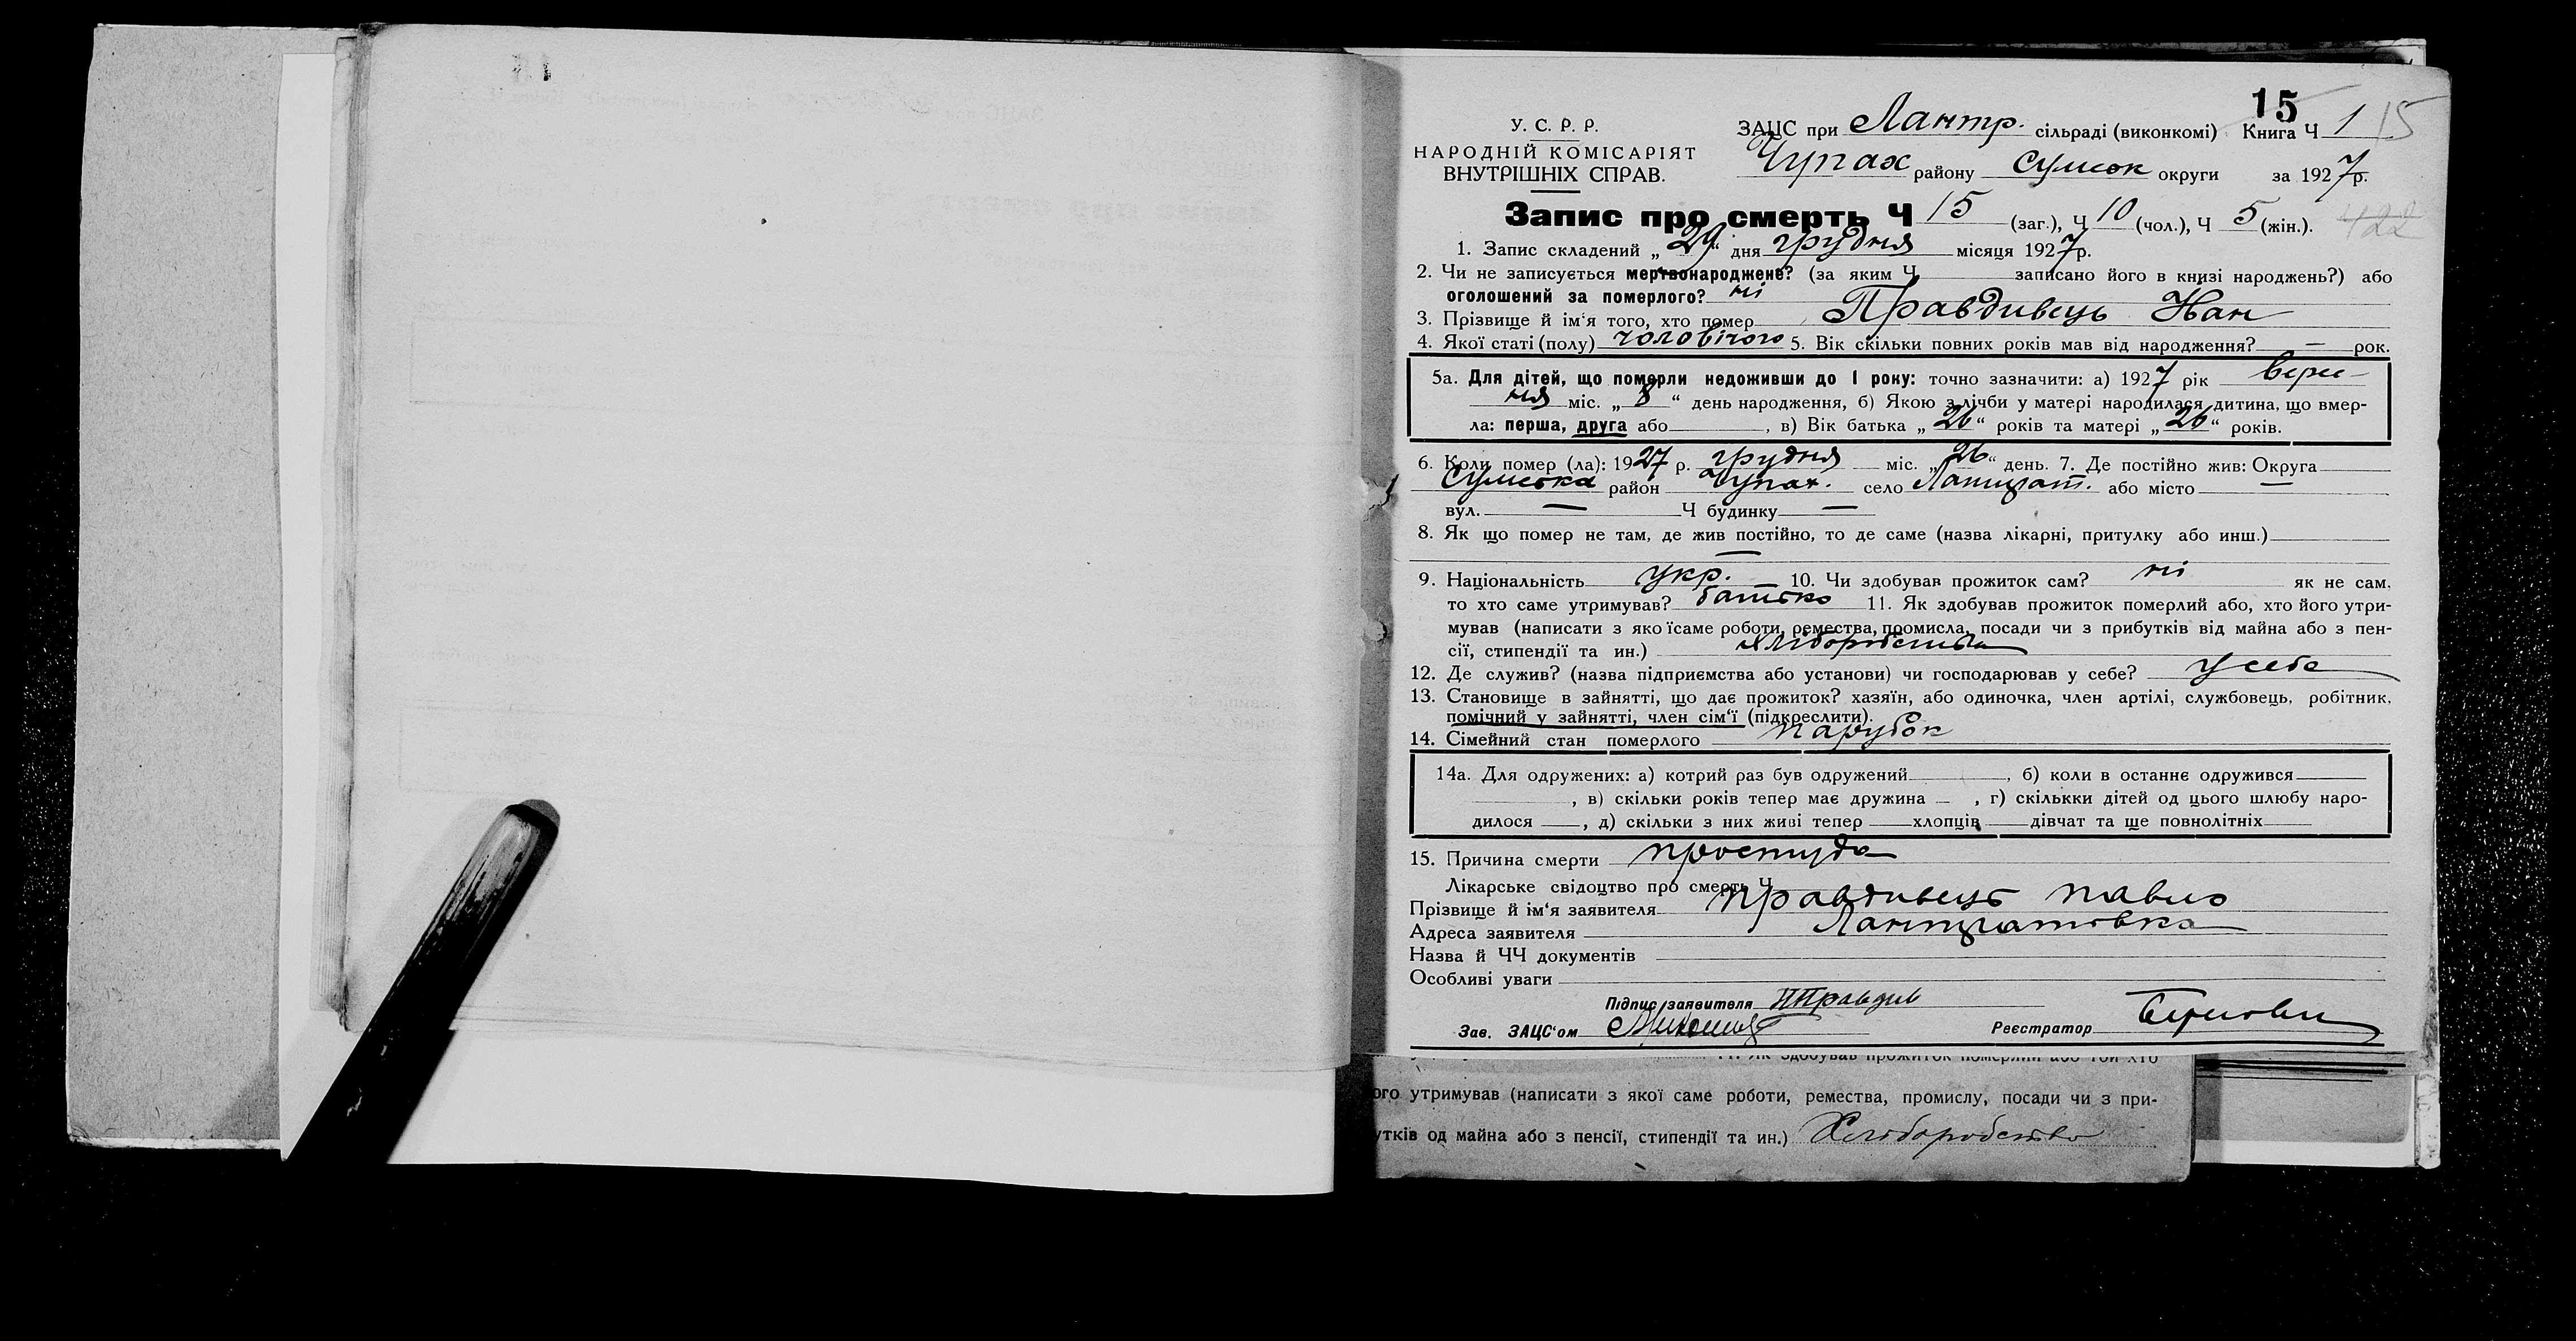 15
У. С. Р. Р.
НАРОДНІЙ КОМІСАРІЯТ
ВНУТРІШНІХ СПРАВ.
ЗАЦС при Лантр. сільраді (виконкомі) Книга Ч 1 15
Чупах району Сумськ округи за 1927 р.
Запис про смерть Ч 15 (заг.), Ч 10 (чол.), Ч 5 (жін.). 422
1. Запис складений „29“ дня грудня місяця 1927 р.
2. Чи не записується мертвонароджене? (за яким Ч записано його в книзі народжень?) або
оголошений за померлого? ні
3. Прізвище й ім'я того, хто помер Правдивець Іван
4. Якої статі (полу) чоловічого 5. Вік скільки повних років мав від народження? — рок.
5а. Для дітей, що померли недоживши до 1 року: точно зазначити: а) 1927 рік верес-
ня міс. „8“ день народження, б) Якою з лічби у матері народилася дитина, що вмер-
ла: перша, друга або , в) Вік батька „26“ років та матері „26“ років.
6. Коли помер (ла): 1927 р. грудня міс. „26“ день. 7. Де постійно жив: Округа
Сумська район Чупах. село Лантрат. або місто —
вул. — Ч будинку —
8. Як що помер не там, де жив постійно, то де саме (назва лікарні, притулку або инш.)
—
9. Національність укр. 10. Чи здобував прожиток сам? ні як не сам,
то хто саме утримував? батько 11. Як здобував прожиток померлий або, хто його утри-
мував (написати з якоїсаме роботи, ремества, промисла, посади чи з прибутків від майна або з пен-
сії, стипендії та ин.) хліборобства
12. Де служив? (назва підприємства або установи) чи господарював у себе? у себе
13. Становище в зайнятті, що дає прожиток? хазяїн, або одиночка, член артілі, службовець, робітник,
помічний у зайнятті, член сім'ї (підкреслити).
14. Сімейний стан померлого парубок
14а. Для одружених: а) котрий раз був одружений , б) коли в останнє одружився
, в) скільки років тепер має дружина — , г) скількки дітей од цього шлюбу наро-
дилося , д) скільки з них живі тепер хлопців дівчат та ще повнолітніх
15. Причина смерти простуда
Лікарське свідоцтво про смерть Ч
Прізвище й ім'я заявителя Правдивець Павло
Адреса заявителя Лантратовка
Назва й ЧЧ документів
Особливі уваги
Підпис заявителя ППравдив
Зав. ЗАЦС'ом Реєстратор
11. Як здобував прожиток померлий або той хто
ого утримував (написати з якої саме роботи, ремества, промислу, посади чи з при-
утків од майна або з пенсії, стипендії та ин.) Хліборобство